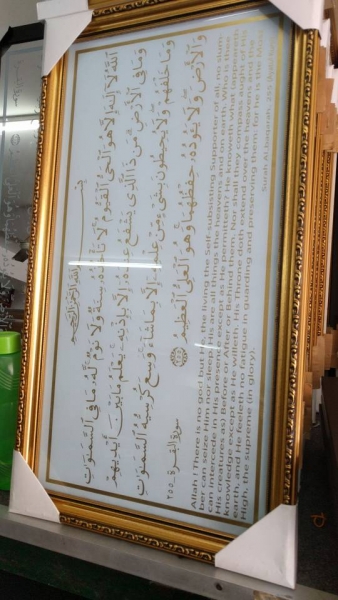 بِسْمِ اللَّهِ الرَّحْمَٰنِ الرَّحِيمِ
اللَّهُ لَا إِلَٰهَ إِلَّا هُوَ الْحَيُّ الْقَيُّومُ لَا تَأْخُذُهُ سِنَةٌ وَلَا نَوْمٌ لَهُ مَا فِي السَّمَٰوَٰتِ
وَمَا فِي الْأَرْضِ مَن ذَا الَّذِي يَشْفَعُ عِندَهُ إِلَّا بِإِذْنِهِ يَعْلَمُ مَا بَيْنَ أَيْدِيهِمْ
وَمَا خَلْفَهُمْ وَلَا يُحِيطُونَ بِشَيْءٍ مِّنْ عِلْمِهِ إِلَّا بِمَا شَاءَ وَسِعَ كُرْسِيُّهُ السَّمَٰوَٰتِ
وَالْأَرْضَ وَلَا يَئُودُهُ حِفْظُهُمَا وَهُوَ الْعَلِيُّ الْعَظِيمُ ٢٥٥
سورة البقرة - ٢٥٥
Allah ! There is no god but He the living the Self-subsisting Supporter of all, no slum-
ber can seize Him nor sleep. His are all things the heavens and on earth. Who is there
can intercede in His presence except as He permiteth? He knoweth what (appeareth to
His creatures as) Before or After or Behind them. Nor shall they compass Aught of His
knowledge except as He willeth. His Throne doth extend over the heavens and the
earth, and He feeleth no fatigue in guarding and preserving them for he is the Most
High, the supreme (in glory).
Surah Al Baqarah, 255